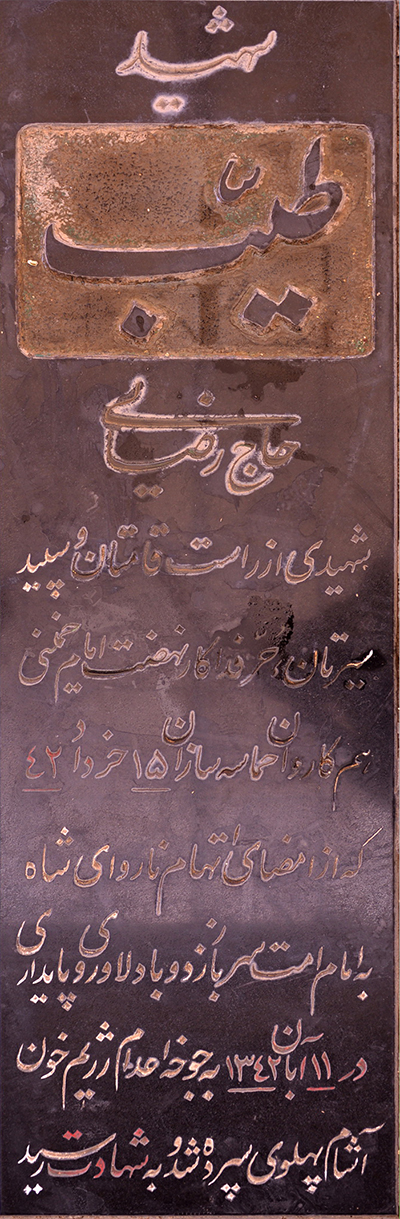 شهید
طیّب
حاج رضایی
شهیدی از راست قامتان و سپید
سیرتان، حُرّ فداکار نهضت امام خمینی
هم کاروان حماسه سازان ۱۵ خرداد ۴۲
که از امضای اتهام ناروای شاه
به امام امت سر باز زد و با دلاوری و پایداری
در ۱۱ آبان ۱۳۴۲ به جوخه اعدام رژیم خون
آشام پهلوی سپرده شد و به شهادت رسید